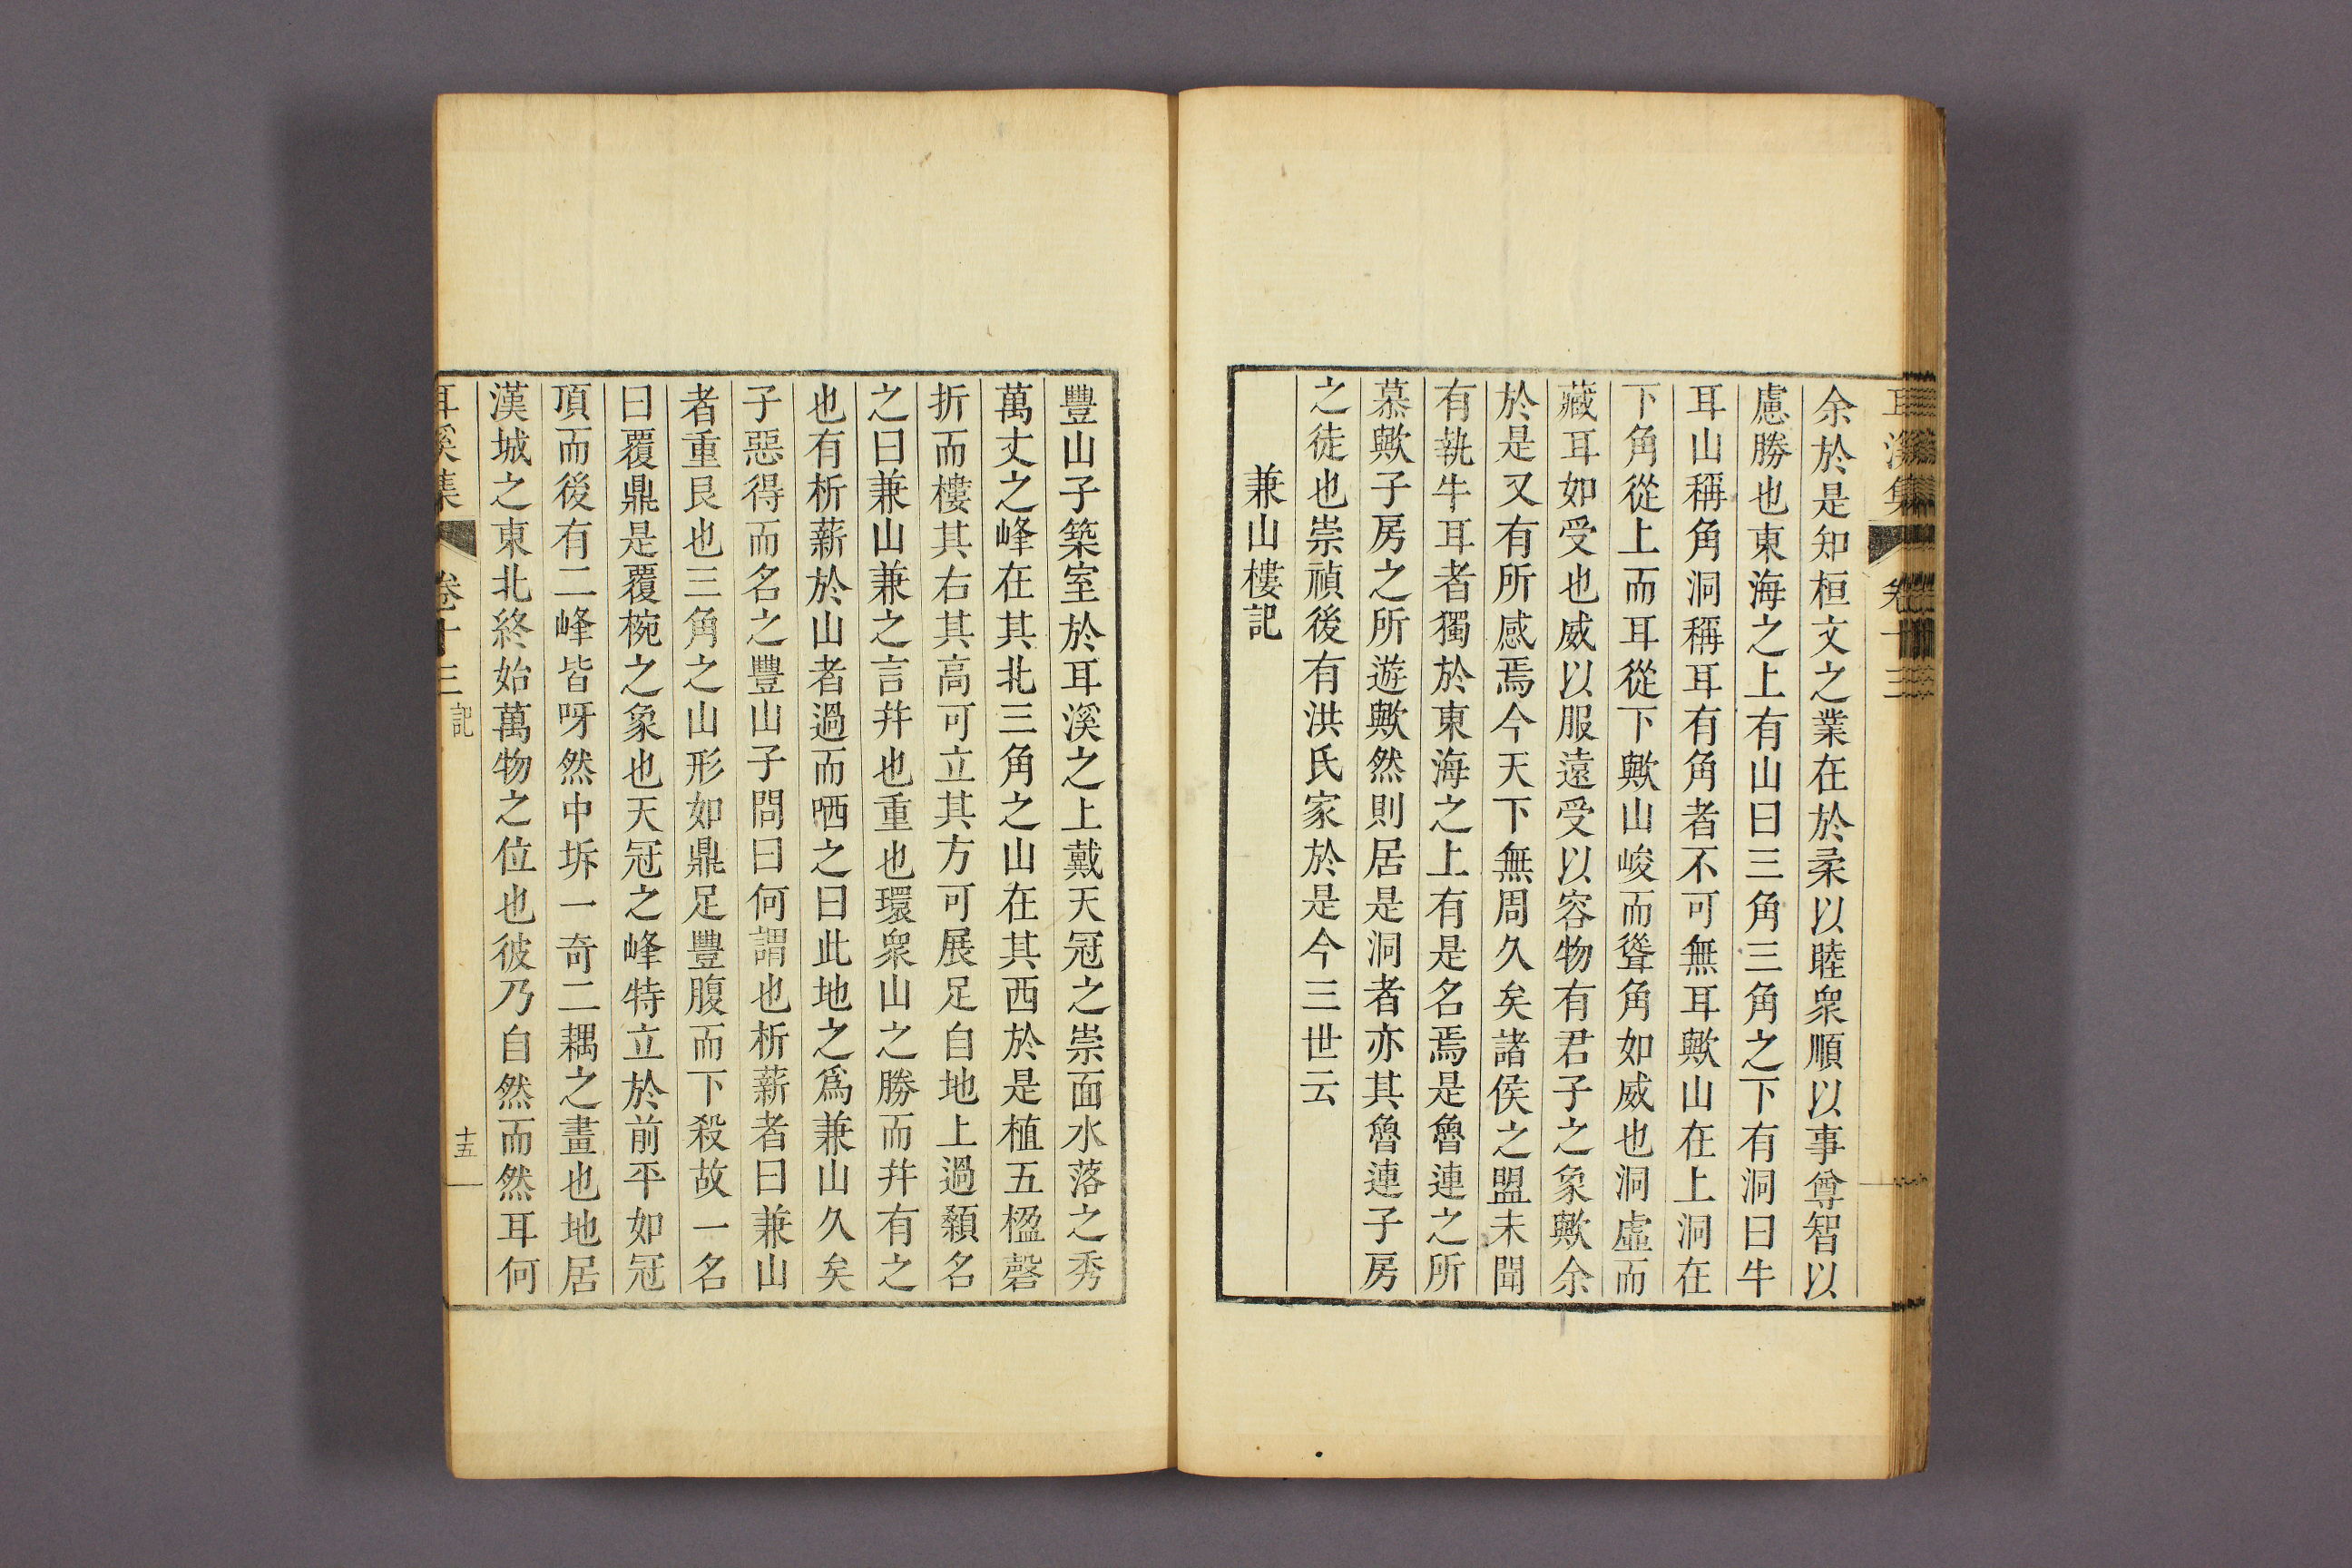 余於是知桓文之業在於柔以睦衆順以事尊智以
慮勝也東海之上有山曰三角三角之下有洞曰牛
耳山稱角洞稱耳有角者不可無耳歟山在上洞在
下角從上而耳從下歟山峻而聳角如威也洞虛而
藏耳如受也威以服遠受以容物有君子之象歟余
於是又有所感焉今天下無周久矣諸侯之盟未聞
有執牛耳者獨於東海之上有是名焉是魯連之所
慕歟子房之所遊歟然則居是洞者亦其魯連子房
之徒也崇禎後有洪氏家於是今三世云
兼山樓記
豐山子築室於耳溪之上戴天冠之崇面水落之秀
萬丈之峰在其北三角之山在其西於是植五楹磬
折而樓其右其高可立其方可展足自地上過顙名
之曰兼山兼之言幷也重也環衆山之勝而幷有之
也有析薪於山者過而哂之曰此地之爲兼山久矣
子惡得而名之豐山子問曰何謂也析薪者曰兼山
者重艮也三角之山形如鼎足豐腹而下殺故一名
曰覆鼎是覆椀之象也天冠之峰特立於前平如冠
頂而後有二峰皆呀然中坼一奇二耦之畫也地居
漢城之東北終始萬物之位也彼乃自然而然耳何
耳溪集 卷十三 記 十五